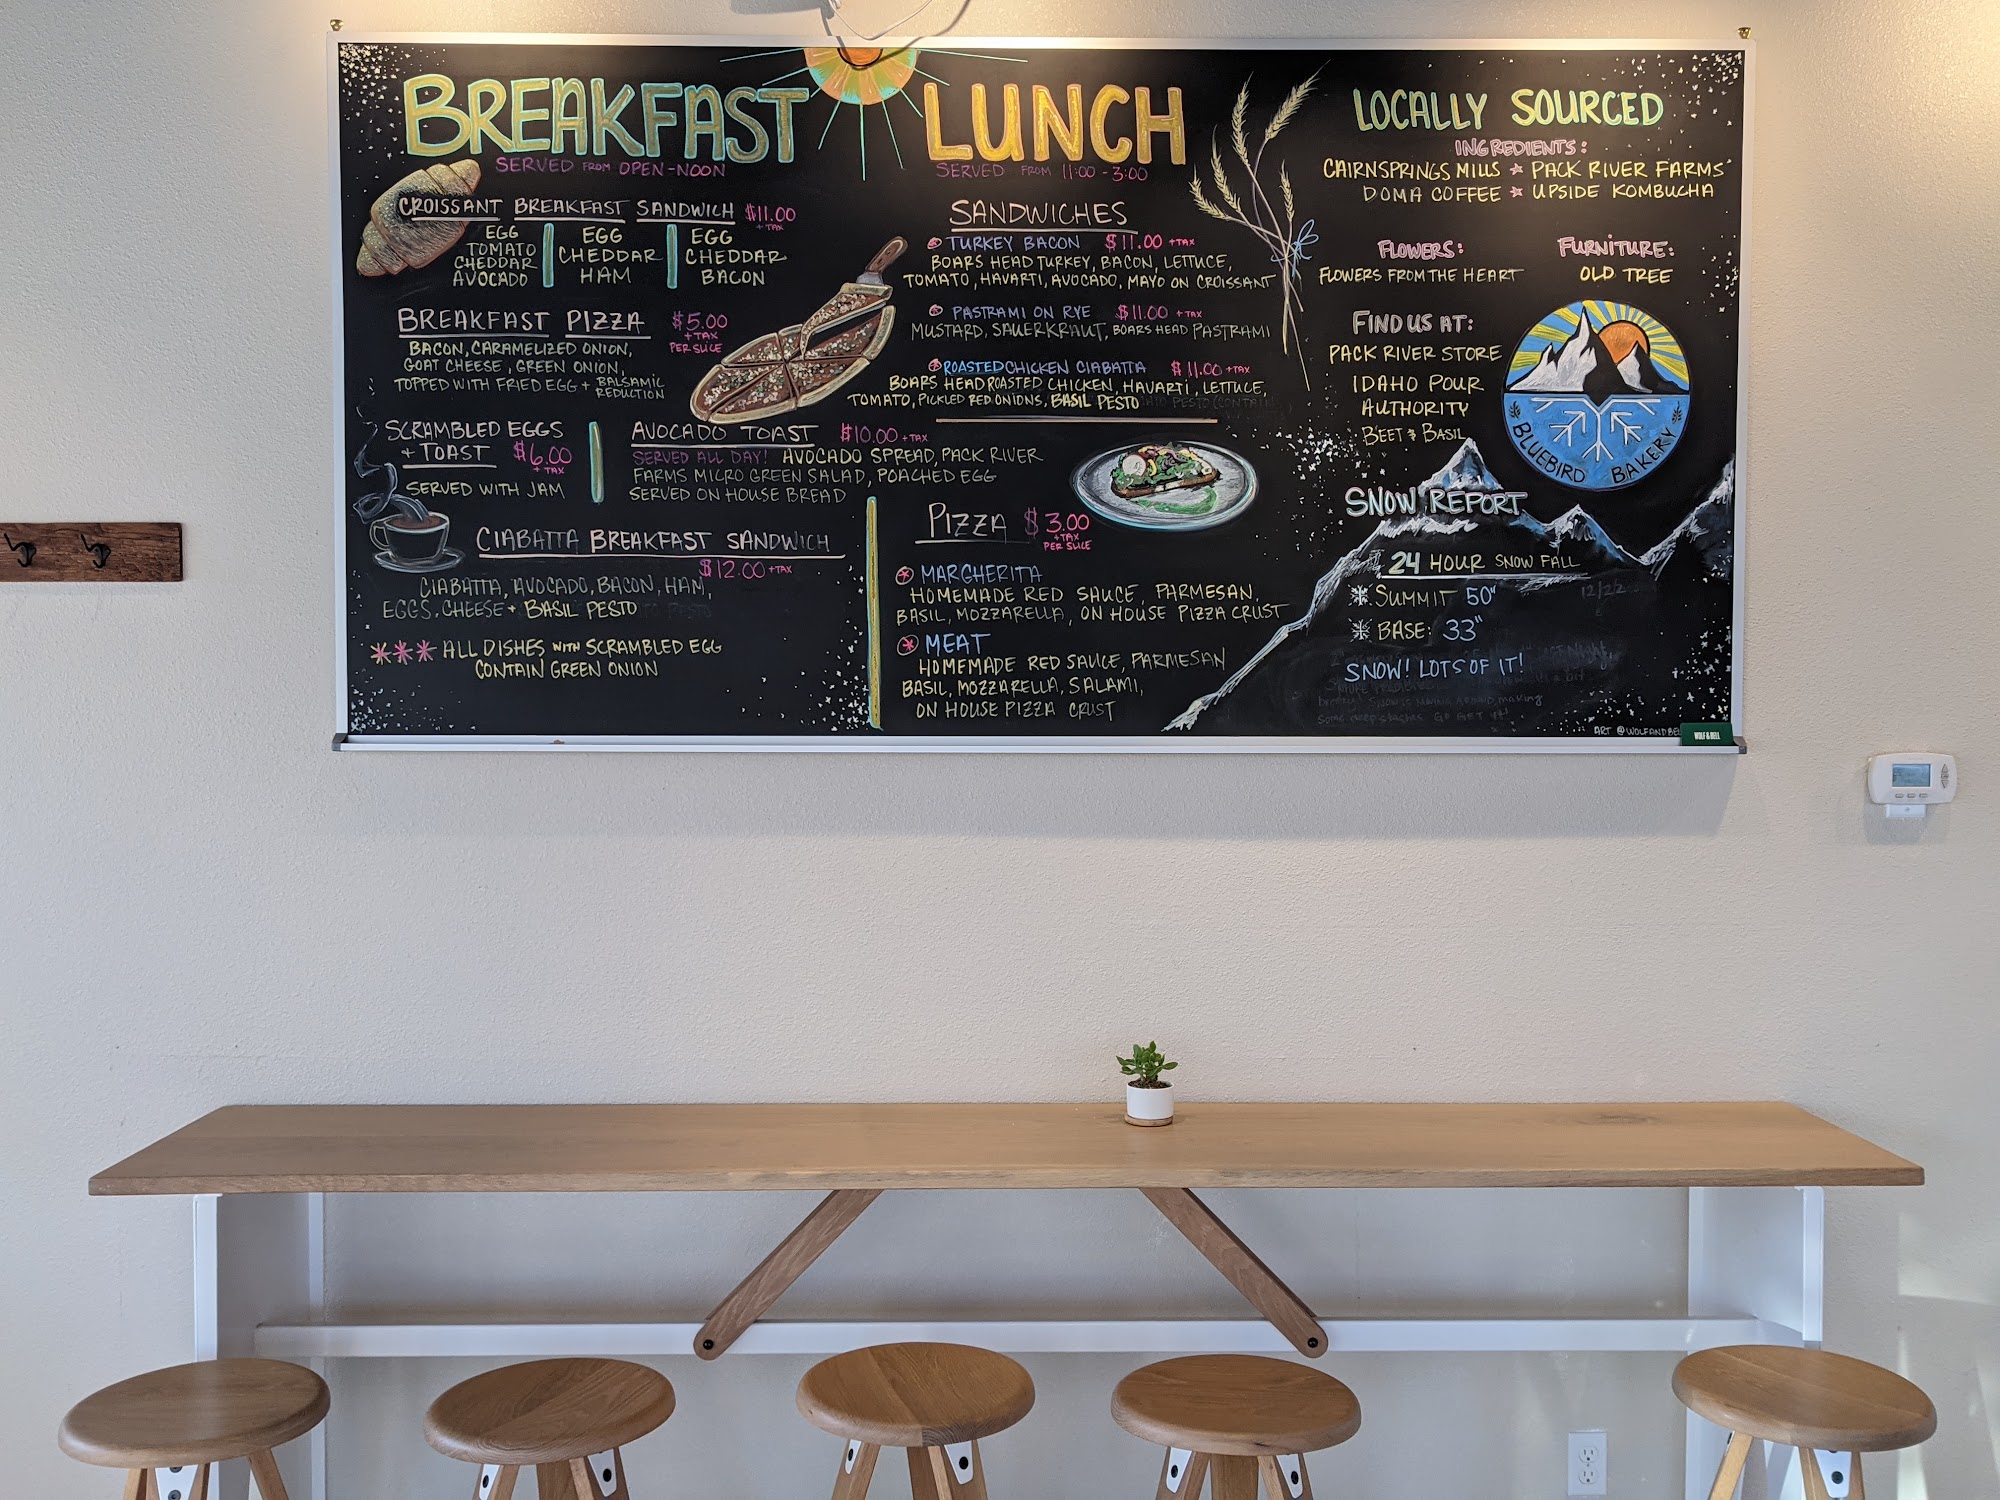 BREAKFAST
SERVED FROM OPEN-NOON
CROISSANT BREAKFAST SANDWICH $11.00
+ TAX
EGG
TOMATO
CHEDDAR
AVOCADO
EGG
CHEDDAR
HAM
EGG
CHEDDAR
BACON
BREAKFAST PIZZA $5.00
+ TAX
PER SLICE
BACON, CARAMELIZED ONION,
GOAT CHEESE, GREEN ONION,
TOPPED WITH FRIED EGG + BALSAMIC
REDUCTION
SCRAMBLED EGGS
+ TOAST $6.00
+ TAX
SERVED WITH JAM
AVOCADO TOAST $10.00 + TAX
SERVED ALL DAY! AVOCADO SPREAD, PACK RIVER
FARMS MICRO GREEN SALAD, POACHED EGG
SERVED ON HOUSE BREAD
CIABATTA BREAKFAST SANDWICH
$12.00 + TAX
CIABATTA, AVOCADO, BACON, HAM,
EGGS, CHEESE + BASIL PESTO
*** ALL DISHES WITH SCRAMBLED EGG
CONTAIN GREEN ONION
LUNCH
SERVED FROM 11:00 - 3:00
SANDWICHES
TURKEY BACON $11.00 + TAX
BOARS HEAD TURKEY, BACON, LETTUCE,
TOMATO, HAVARTI, AVOCADO, MAYO ON CROISSANT
PASTRAMI ON RYE $11.00 + TAX
MUSTARD, SAUERKRAUT, BOARS HEAD PASTRAMI
ROASTED CHICKEN CIABATTA $11.00 + TAX
BOARS HEAD ROASTED CHICKEN, HAVARTI, LETTUCE,
TOMATO, PICKLED RED ONIONS, BASIL PESTO
PIZZA $3.00
+ TAX
PER SLICE
MARGHERITA
HOMEMADE RED SAUCE, PARMESAN,
BASIL, MOZZARELLA, ON HOUSE PIZZA CRUST
MEAT
HOMEMADE RED SAUCE, PARMESAN
BASIL, MOZZARELLA, SALAMI,
ON HOUSE PIZZA CRUST
LOCALLY SOURCED
INGREDIENTS:
CAIRNSPRINGS MILLS * PACK RIVER FARMS
DOMA COFFEE * UPSIDE KOMBUCHA
FLOWERS:
FLOWERS FROM THE HEART
FURNITURE:
OLD TREE
FIND US AT:
PACK RIVER STORE
IDAHO POUR
AUTHORITY
BEET & BASIL
BLUEBIRD BAKERY
SNOW REPORT
24 HOUR SNOW FALL
SUMMIT 50"
12/22
BASE: 33"
SNOW! LOTS OF IT!
ART @WOLFANDBEL
WOLF & BELL